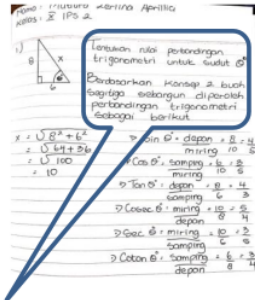 Nama : Mutiara Zerlina Aprillia
Kelas : X IPS 2
1.)
8
x
6
θ
Tentukan nilai perbandingan
trigonometri untuk sudut θ°
Berdasarkan Konsep 2 buah
Segitiga sebangun diperoleh
perbandingan trigonometri
sebagai berikut
x = √8² + 6²
= √64 + 36
= √100
= 10
> Sin θ° = depan/miring = 8/10 = 4/5
> Cos θ° = samping/miring = 6/10 = 3/5
> Tan θ° = depan/samping = 8/6 = 4/3
> Cosec θ° = miring/depan = 10/8 = 5/4
> Sec θ° = miring/samping = 10/6 = 5/3
> Cotan θ° = samping/depan = 6/8 = 3/4